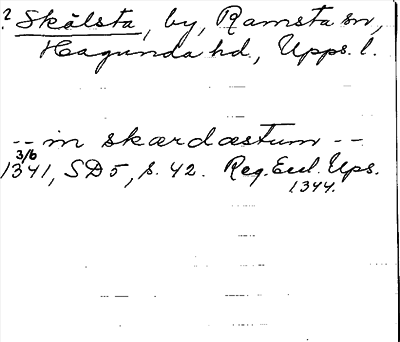 ? Skälsta, by, Ramsta sn,
Hagunda hd., Upps. l.
-- in skærdæstum --
3/6
1341, SD 5, s. 42. Reg. Eccl. Ups.
1344.